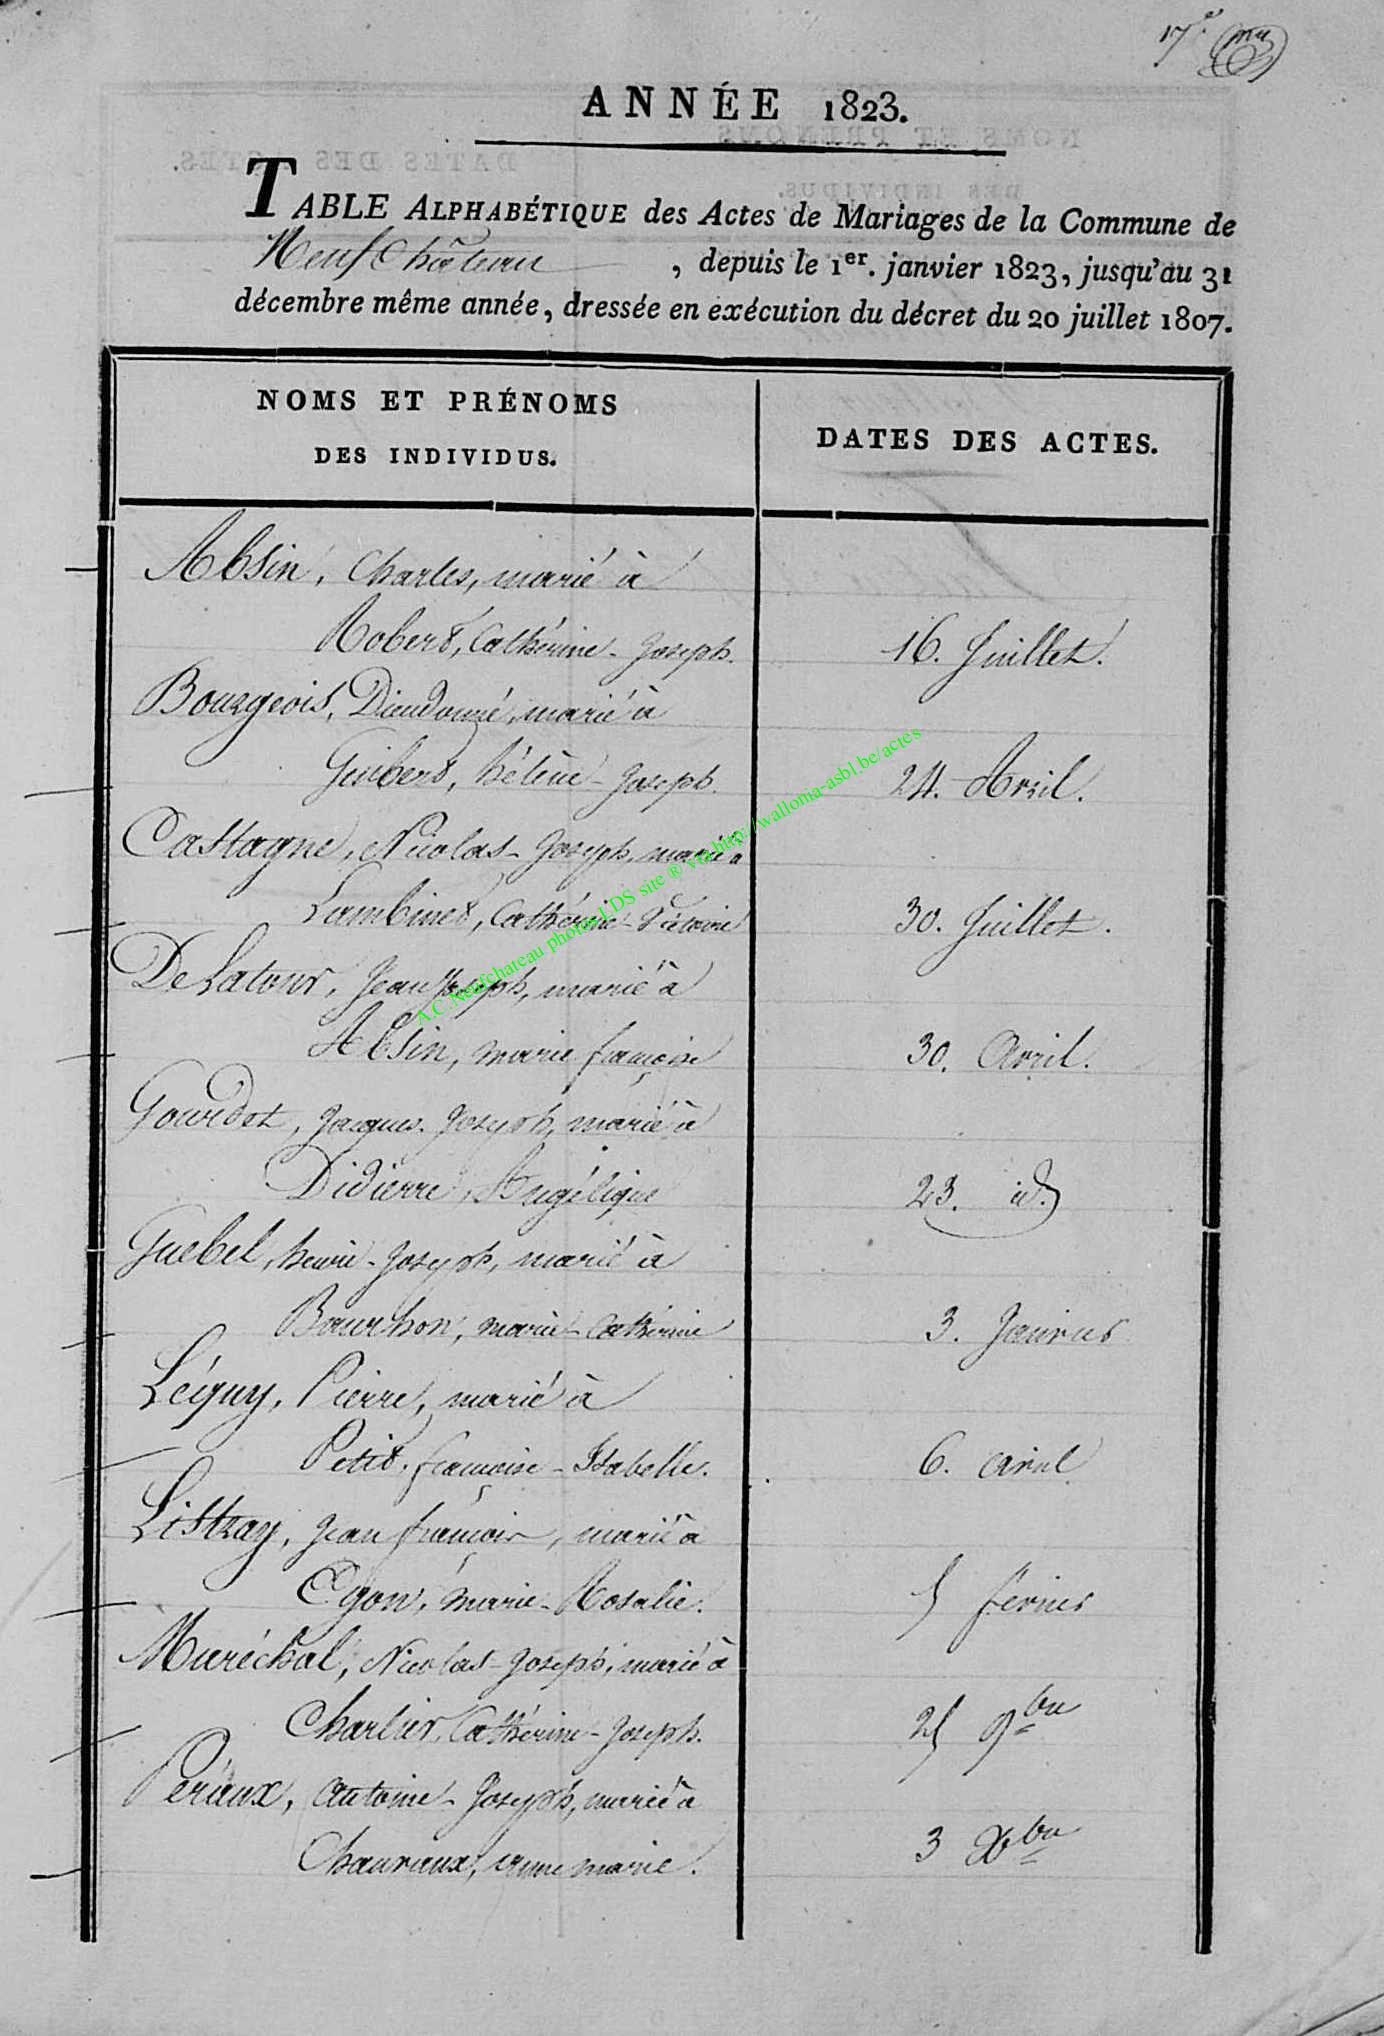 17.e
ANNÉE 1823.
TABLE ALPHABÉTIQUE des Actes de Mariages de la Commune de
Neufchâteau, depuis le 1er. janvier 1823, jusqu'au 31
décembre même année, dressée en exécution du décret du 20 juillet 1807.
NOMS ET PRÉNOMS
DES INDIVIDUS.
DATES DES ACTES.
Absin, Charles, marié à
Robert, Cathérine-Joseph. 16. Juillet.
Bourgeois, Dieudonné, marié à
Guibert, hélène-Joseph. 24. Avril.
Castagne, Nicolas-Joseph, marié à
Lambinet, Cathérine-Victoire 30. Juillet.
DeLatour, Jean Joseph, marié à
Absin, marie françoise 30. Avril.
Gourdet, Jacques-Joseph, marié à
Didierre, Angélique 23. id.
Guebel, henri-Joseph, marié à
Bourhon, marie-Cathérine 3. Janvier
Léquy, Pierre, marié à
Petit, françoise-Isabelle. 6. avril
Listray, Jean françois, marié à
Egon, marie-Rosalie. 5 février
Maréchal, Nicolas-Joseph, marié à
Charlier, Cathérine-Joseph. 25 9bre
Periaux, antoine-Joseph, marié à
Chauvaux, anne marie. 3 Xbre
A.C. Neufchateau photos LDS site ® via http://wallonia-asbl.be/actes